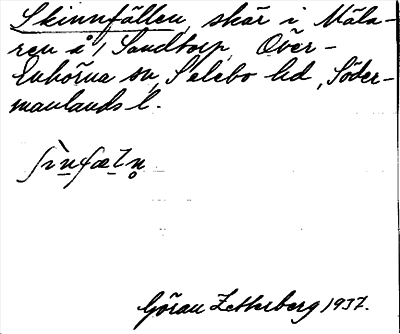 Skinnfällen, skär i Mäla-
ren å Sandtorp, Över-
Enhörna sn, Selebo hd, Söder-
manlands l.
Göran Zetterberg 1937.